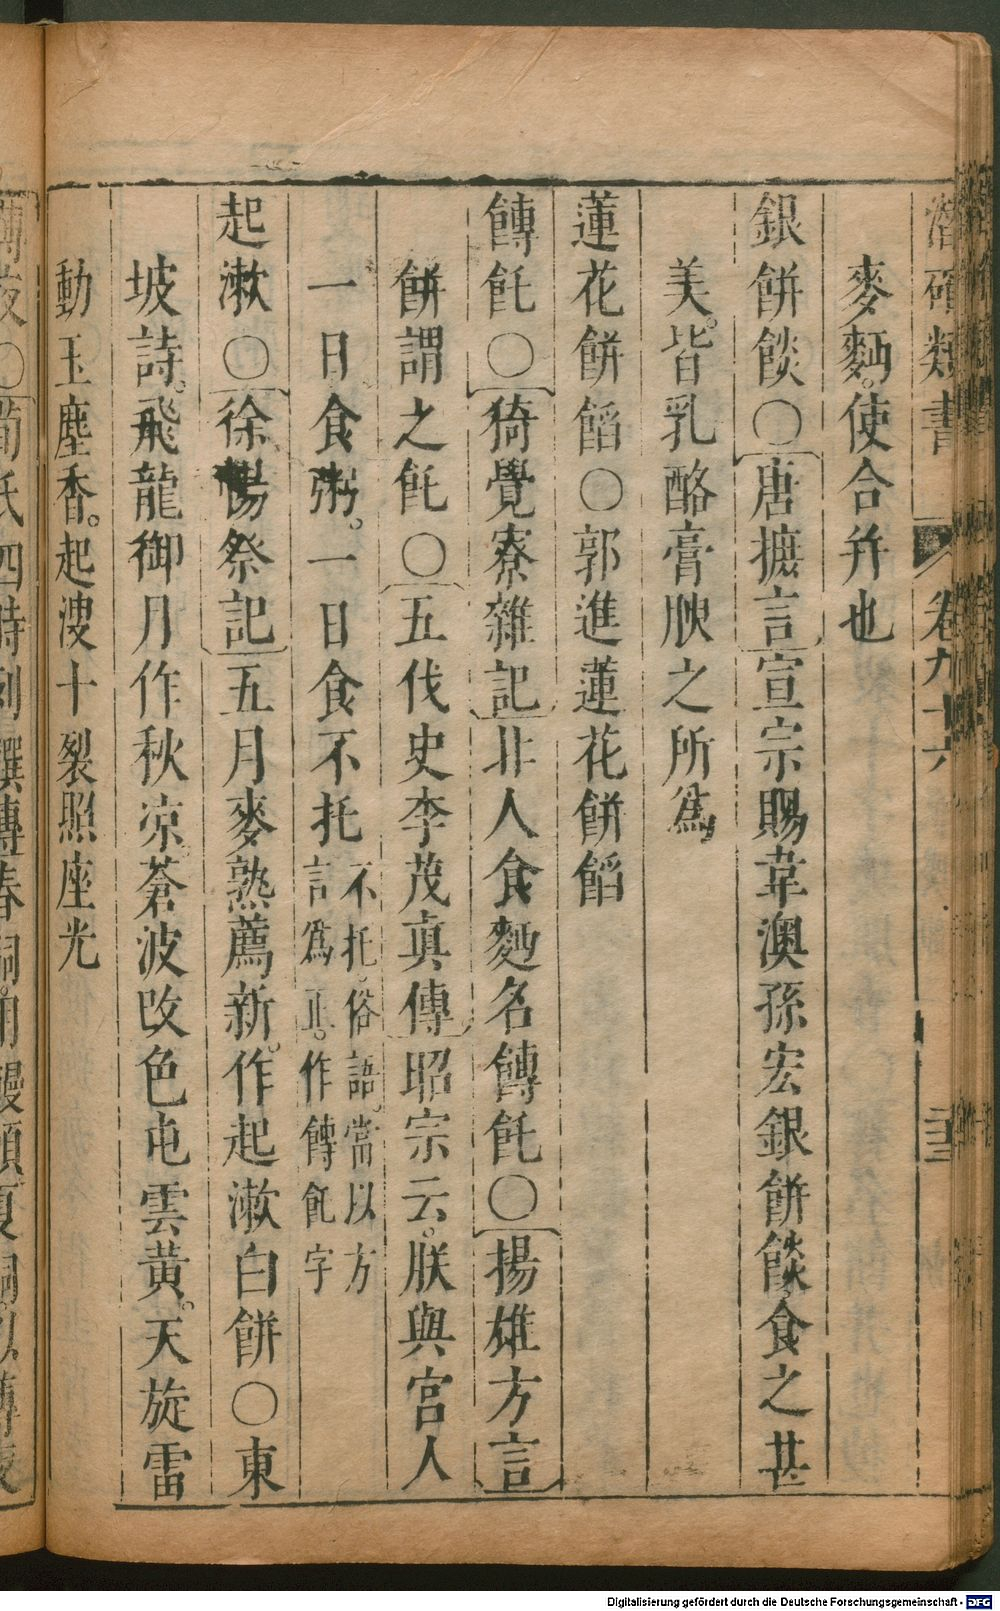 潛確類書 卷九十六 二十三
麥麵。使合幷也
銀餅餤○唐摭言宣宗賜韋澳孫宏銀餅餤。食之甚
美。皆乳酪膏腴之所爲
蓮花餅餡○郭進蓮花餅餡
餺飥○猗覺寮雜記北人食麪名餺飥○揚雄方言
餅謂之飥○五代史李茂眞傳昭宗云。朕與宮人
一日食粥。一日食不托
不托。俗語。當以方
言爲正。作餺飥字
起漱○徐暢祭記五月麥熟薦新。作起漱白餅○東
坡詩。飛龍御月作秋凉。蒼波改色屯雲黃。天旋雷
動玉塵香。起溲十裂照座光
薄夜○荀氏四時列饌傳春祠用饅頭夏祠以薄夜
Digitalisierung gefördert durch die Deutsche Forschungsgemeinschaft - DFG